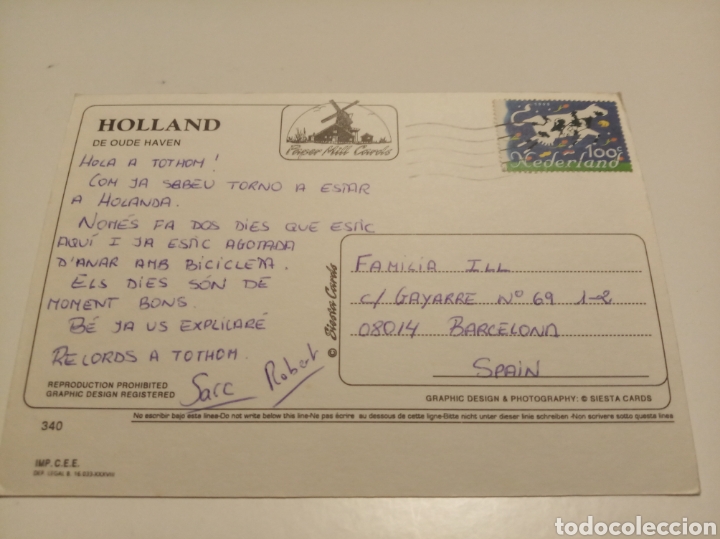 HOLLAND
DE OUDE HAVEN
Paper Mill Cards
100c
Nederland
HOLA A TOTHOM!
COM JA SABEU TORNO A ESTAR
A HOLANDA.
NOMÉS FA DOS DIES QUE ESTIC
AQUÍ I JA ESTIC AGOTADA
D'ANAR AMB BICICLETA.
ELS DIES SÓN DE
MOMENT BONS.
BÉ JA US EXPLICARÉ
RECORDS A TOTHOM.
Robert
© Siesta Cards
FAMILIA ILL
C/ GAYARRE Nº 69 1-2
08014 BARCELONA
SPAIN
REPRODUCTION PROHIBITED
GRAPHIC DESIGN REGISTERED
GRAPHIC DESIGN & PHOTOGRAPHY: © SIESTA CARDS
No escribir bajo esta linea-Do not write below this line-Ne pas écrire au dessous de cette ligne-Bitte nicht unter dieser linie schreiben -Non scrivere sotto questa linea
340
IMP. C.E.E.
todocoleccion